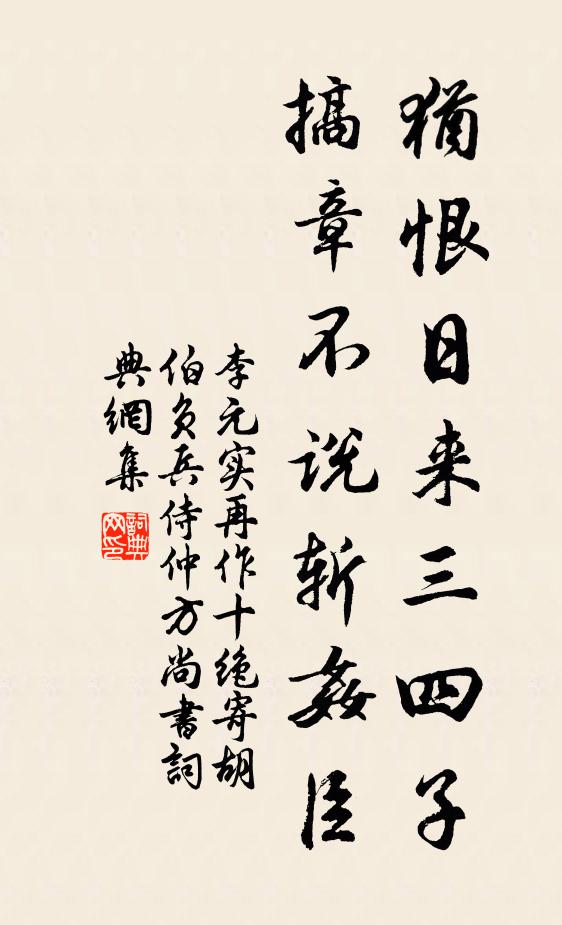 猶恨日来三四子
搞章不说斩姦臣
李元实再作十绝寄胡
伯负兵侍仲方尚書詞
典網集
詞典网印